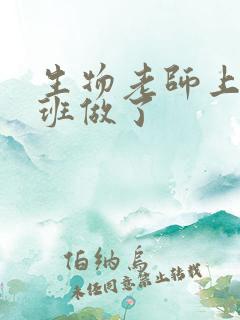 生物老师上
班做了
伯纳乌
未经同意禁止转载